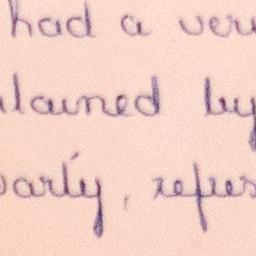 had a very
lained by
party, refres